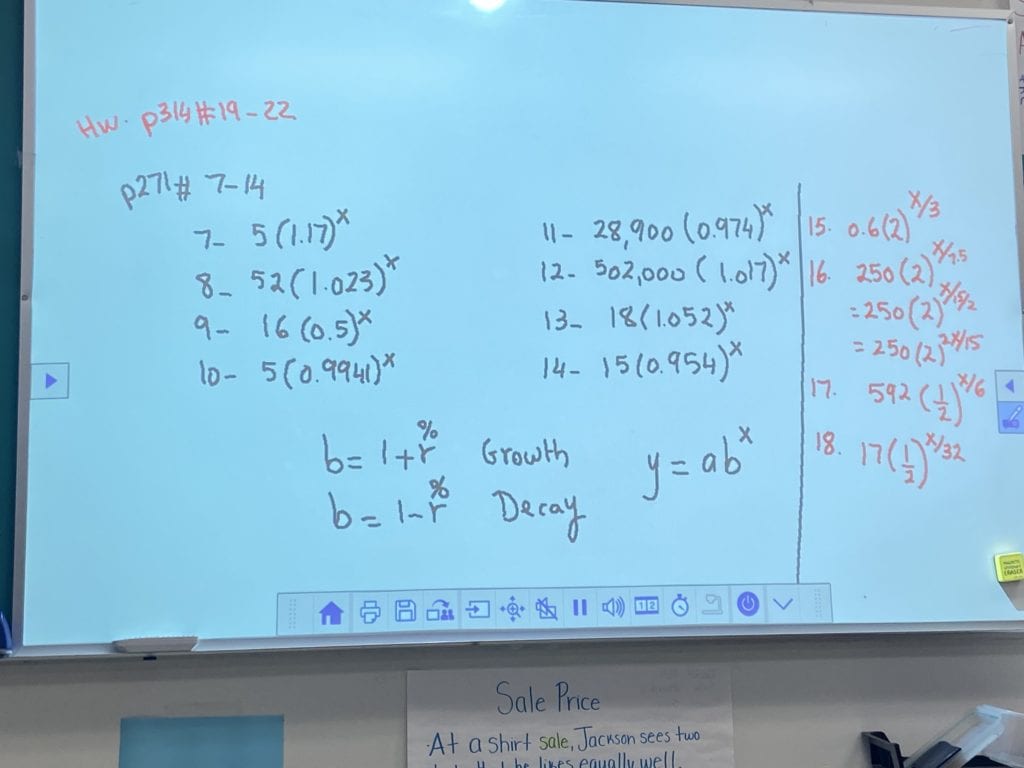 Hw. p314 #19-22
p271# 7-14
7- 5(1.17)^x
8- 52(1.023)^x
9- 16(0.5)^x
10- 5(0.9941)^x
11- 28,900(0.974)^x
12- 502,000(1.017)^x
13- 18(1.052)^x
14- 15(0.954)^x
b=1+r% Growth
b=1-r% Decay
y=ab^x
15. 0.6(2)^x/3
16. 250(2)^x/7.5
=250(2)^x/15/2
=250(2)^2x/15
17. 592(1/2)^x/6
18. 17(1/2)^x/32
Sale Price
At a shirt sale, Jackson sees two
he likes equally well.